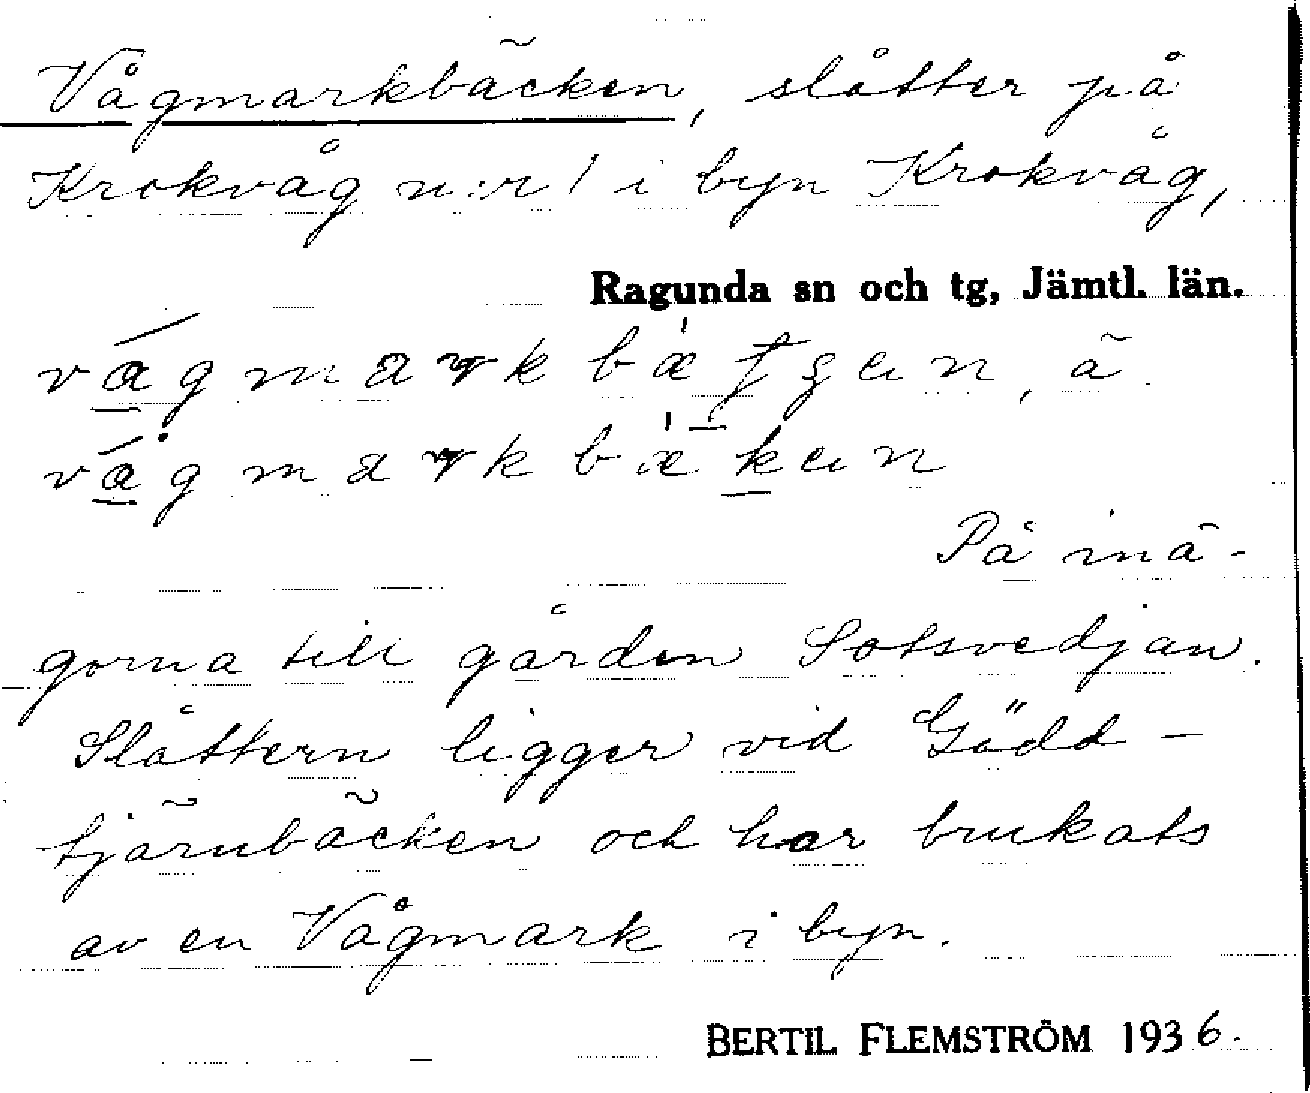 Vågmarkbäcken, slåtter på
Krokvåg n:r 1 i byn Krokvåg,
Ragunda sn och tg, Jämtl. län.
På inä-
gorna till gården Sotsvedjan.
Slåttern ligger vid Gädd-
tjärnbäcken och har brukats
av en Vågmark i byn.
BERTIL FLEMSTRÖM 1936.